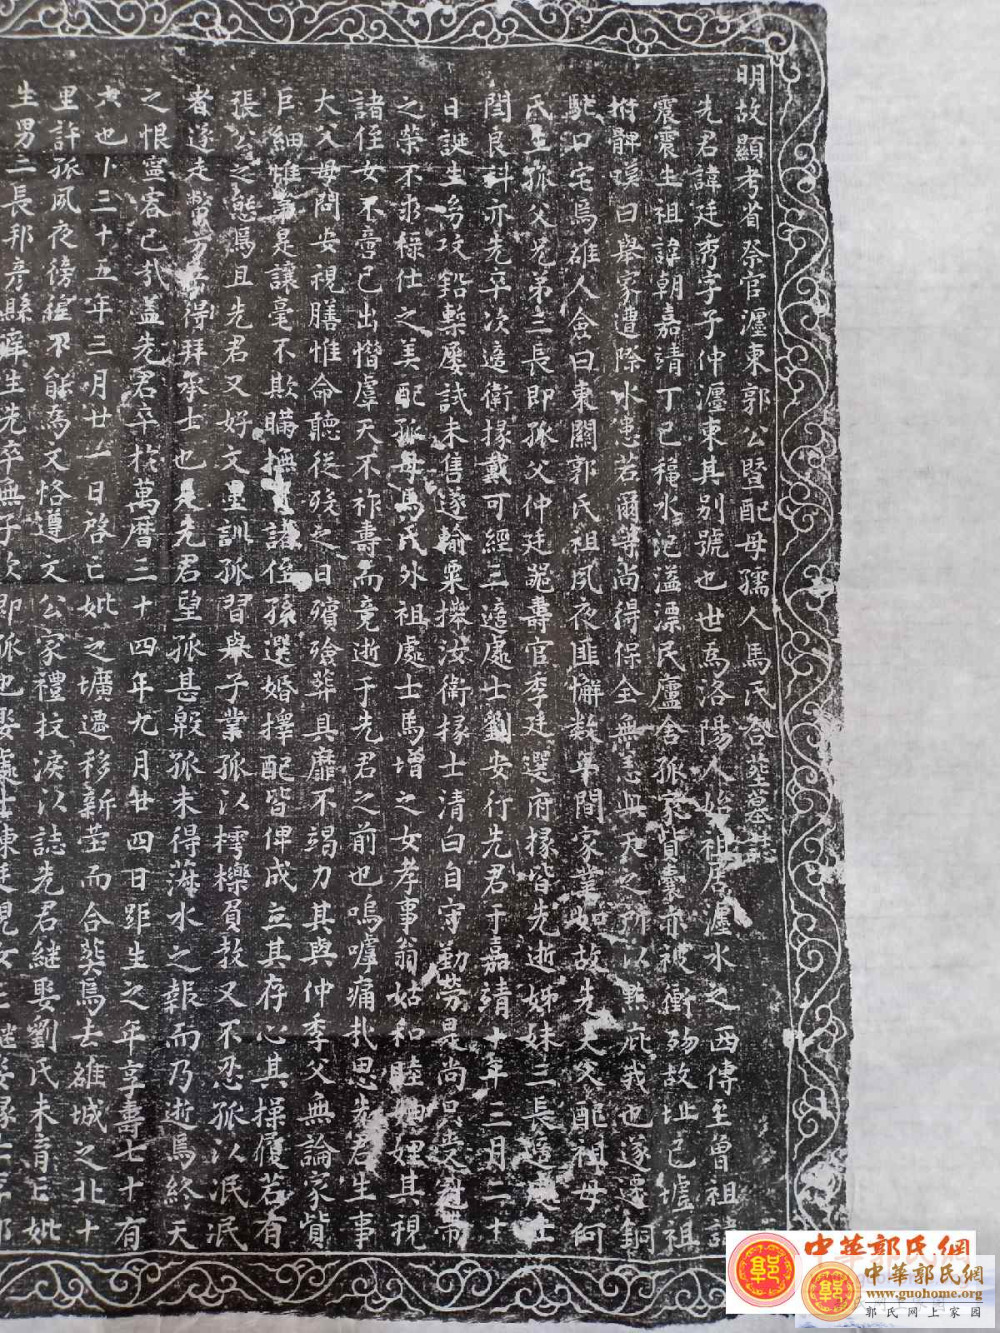 明故顯考省祭官瀍東郭公暨配母孺人馬氏合葬墓誌
先君諱廷秀字子仲瀍東其別號也世為洛陽人始祖居瀍水之西傳至曾祖諱
震震生祖諱朝嘉靖丁巳瀍水汜溢漂民廬舍孤家貲囊亦被衝歿故址已墟祖
拊髀嘆曰舉家遭除水患若爾等尚得保全無恙此天之所以默庇我也遂遷銅
駝口宅焉雒人僉曰東關郭氏祖夙夜匪懈数年間家業如故先大父配祖母何
氏生孤父兄弟三長即孤父仲廷 壽官季廷選府掾皆先逝姊妹三長適處士
閆良科亦先卒次適衛掾戴可經三適處士劉安行先君于嘉靖十年三月二十
日誕生幼攻鉛槧屢試未售遂輸粟撥汝衛掾士清白自守勤勞是尚只受冠帶
之榮不求祿仕之美配孤母馬氏外祖處士馬增之女孝事翁姑和睦 娌其視
諸侄女不啻己出憯虐天不祚壽而竟逝于先君之前也嗚嘑痛扎思先君生事
大父母問安視膳惟命聽從殁之日殯殮葬具靡不竭力其與仲季父無論家貲
巨細雄 是讓毫不欺瞞撫 諸侄孫選婚擇配皆俾成立其存心其操履若有
張公之態焉且先君又好文墨訓孤習舉子業孤以樗櫟負教又不忍孤以泯泯
者遂走 方 得拜承士也是先君望孤甚殷孤未得菽水之報而乃逝焉終天
之恨寧容已扎盖先君卒於萬曆三十四年九月廿四日距生之年享壽七十有
六也卜三十五年三月廿一日啓亡妣之壙遷移新塋而合葬焉去雒城之北十
里許孤夙夜徬徨不能為文恪遵文公家禮抆淚以誌先君継娶劉氏未育亡妣
生男二長邦彦縣庠生先卒無子次即孤也娶處士陳廷現女
中華郭氏網
中華郭氏網
www.guohome.org
郭氏网上家园